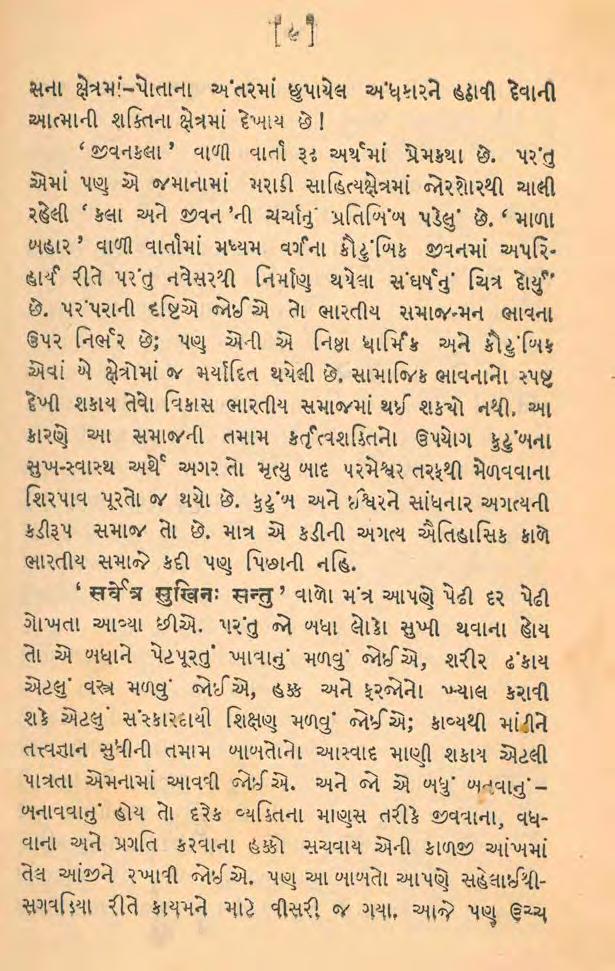 [૯]
સના ક્ષેત્રમાં–પોતાના અંતરમાં છુપાયેલ અંધકારને હઠાવી દેવાની
આત્માની શક્તિના ક્ષેત્રમાં દેખાય છે!
‘જીવનકલા’ વાળી વાર્તા રૂઢ અર્થમાં પ્રેમકથા છે. પરંતુ
એમાં પણ એ જમાનામાં મરાઠી સાહિત્યક્ષેત્રમાં જોરશોરથી ચાલી
રહેલી ‘કલા અને જીવન’ની ચર્ચાનું પ્રતિબિંબ પડેલું છે. ‘માળા
બહાર’ વાળી વાર્તામાં મધ્યમ વર્ગના કૌટુંબિક જીવનમાં અપરિ-
હાર્ય રીતે પરંતુ નવેસરથી નિર્માણ થયેલા સંઘર્ષનું ચિત્ર દોર્યું
છે. પરંપરાની દૃષ્ટિએ જોઈએ તો ભારતીય સમાજ-મન ભાવના
ઉપર નિર્ભર છે; પણ એની એ નિષ્ઠા ધાર્મિક અને કૌટુંબિક
એવાં બે ક્ષેત્રોમાં જ મર્યાદિત થયેલી છે. સામાજિક ભાવનાનો સ્પષ્ટ
દેખી શકાય તેવો વિકાસ ભારતીય સમાજમાં થઈ શક્યો નથી. આ
કારણે આ સમાજની તમામ કર્તૃત્વશક્તિનો ઉપયોગ કુટુંબના
સુખ-સ્વાસ્થ અર્થે અગર તો મૃત્યુ બાદ પરમેશ્વર તરફથી મેળવવાના
શિરપાવ પૂરતો જ થયો છે. કુટુંબ અને ઈશ્વરને સાંધનાર અગત્યની
કડીરૂપ સમાજ તો છે. માત્ર એ કડીની અગત્ય ઐતિહાસિક કાળે
ભારતીય સમાજે કદી પણ પિછાની નહિ.
‘સર્વેત્ર સુખિનઃ સન્તુ’ વાળો મંત્ર આપણે પેઢી દર પેઢી
ગોખતા આવ્યા છીએ. પરંતુ જો બધા લોકો સુખી થવાના હોય
તો એ બધાને પેટપૂરતું ખાવાનું મળવું જોઈએ, શરીર ઢંકાય
એટલું વસ્ત્ર મળવું જોઈએ, હક્ક અને ફરજોનો ખ્યાલ કરાવી
શકે એટલું સંસ્કારદાયી શિક્ષણ મળવું જોઈએ; કાવ્યથી માંડીને
તત્ત્વજ્ઞાન સુધીની તમામ બાબતોનો આસ્વાદ માણી શકાય એટલી
પાત્રતા એમનામાં આવવી જોઈએ. અને જો એ બધું બનવાનું–
બનાવવાનું હોય તો દરેક વ્યક્તિના માણસ તરીકે જીવવાના, વધ-
વાના અને પ્રગતિ કરવાના હક્કો સચવાય એની કાળજી આંખમાં
તેલ આંજીને રખાવી જોઈએ. પણ આ બાબતો આપણે સહેલાઈથી-
સગવડિયા રીતે કાયમને માટે વીસરી જ ગયા. આજે પણ ઉચ્ચ